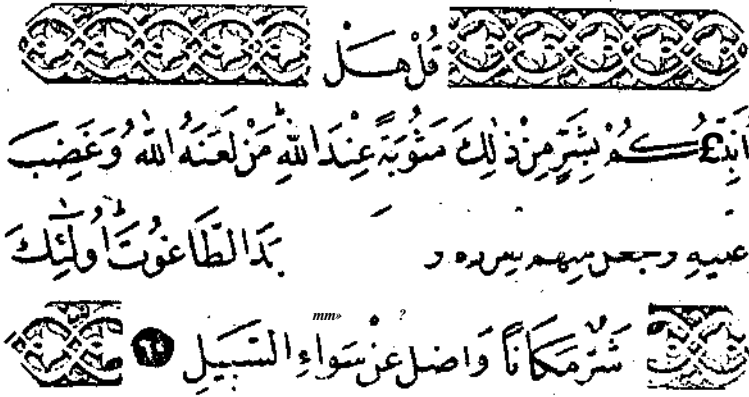 قُلْ هَلْ
أُنَبِّئُكُمْ بِشَرٍّ مِنْ ذٰلِكَ مَثُوبَةً عِنْدَ اللّٰهِ ۚ مَنْ لَعَنَهُ اللّٰهُ وَغَضِبَ
عَلَيْهِ وَجَعَلَ مِنْهُمُ الطَّاغُوتَ ۚ أُولٰئِكَ
شَرٌّ مَكَانًا وَأَضَلُّ عَنْ سَوَاءِ السَّبِيلِ ٦٠